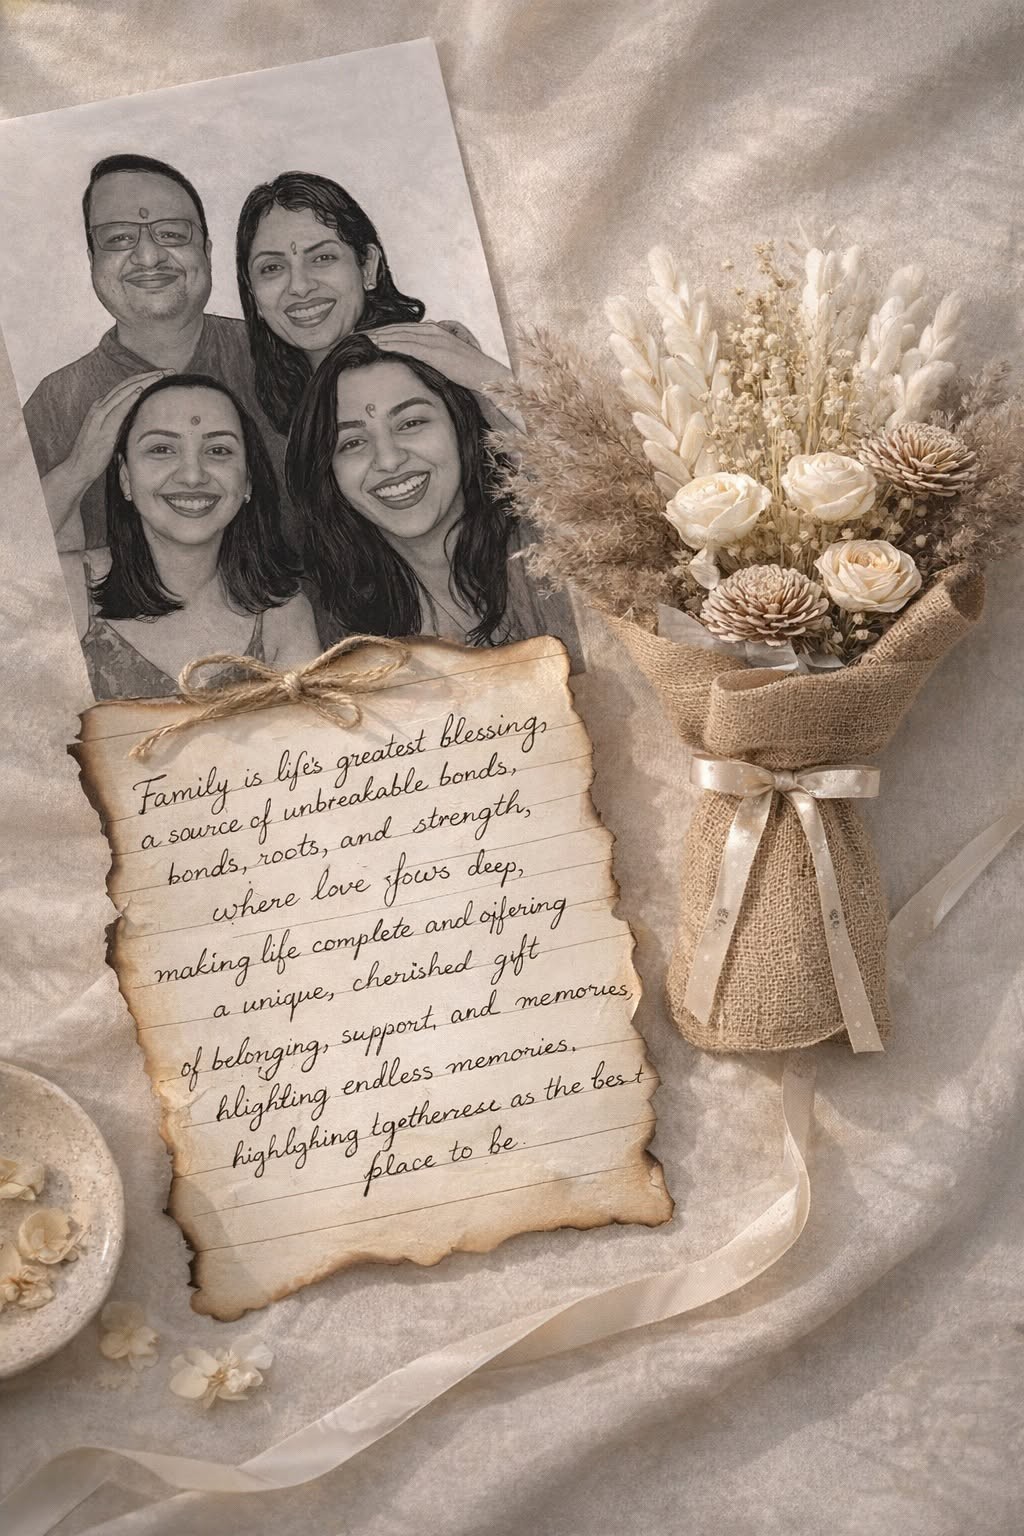 Family is life's greatest blessing,
a source of unbreakable bonds,
bonds, roots, and strength,
where love fows deep,
making life complete and ojfering
a unique, cherished gift
of belonging, support, and memories,
hlighting endless memories.
highlghing tgetherrese as the best
place to be.